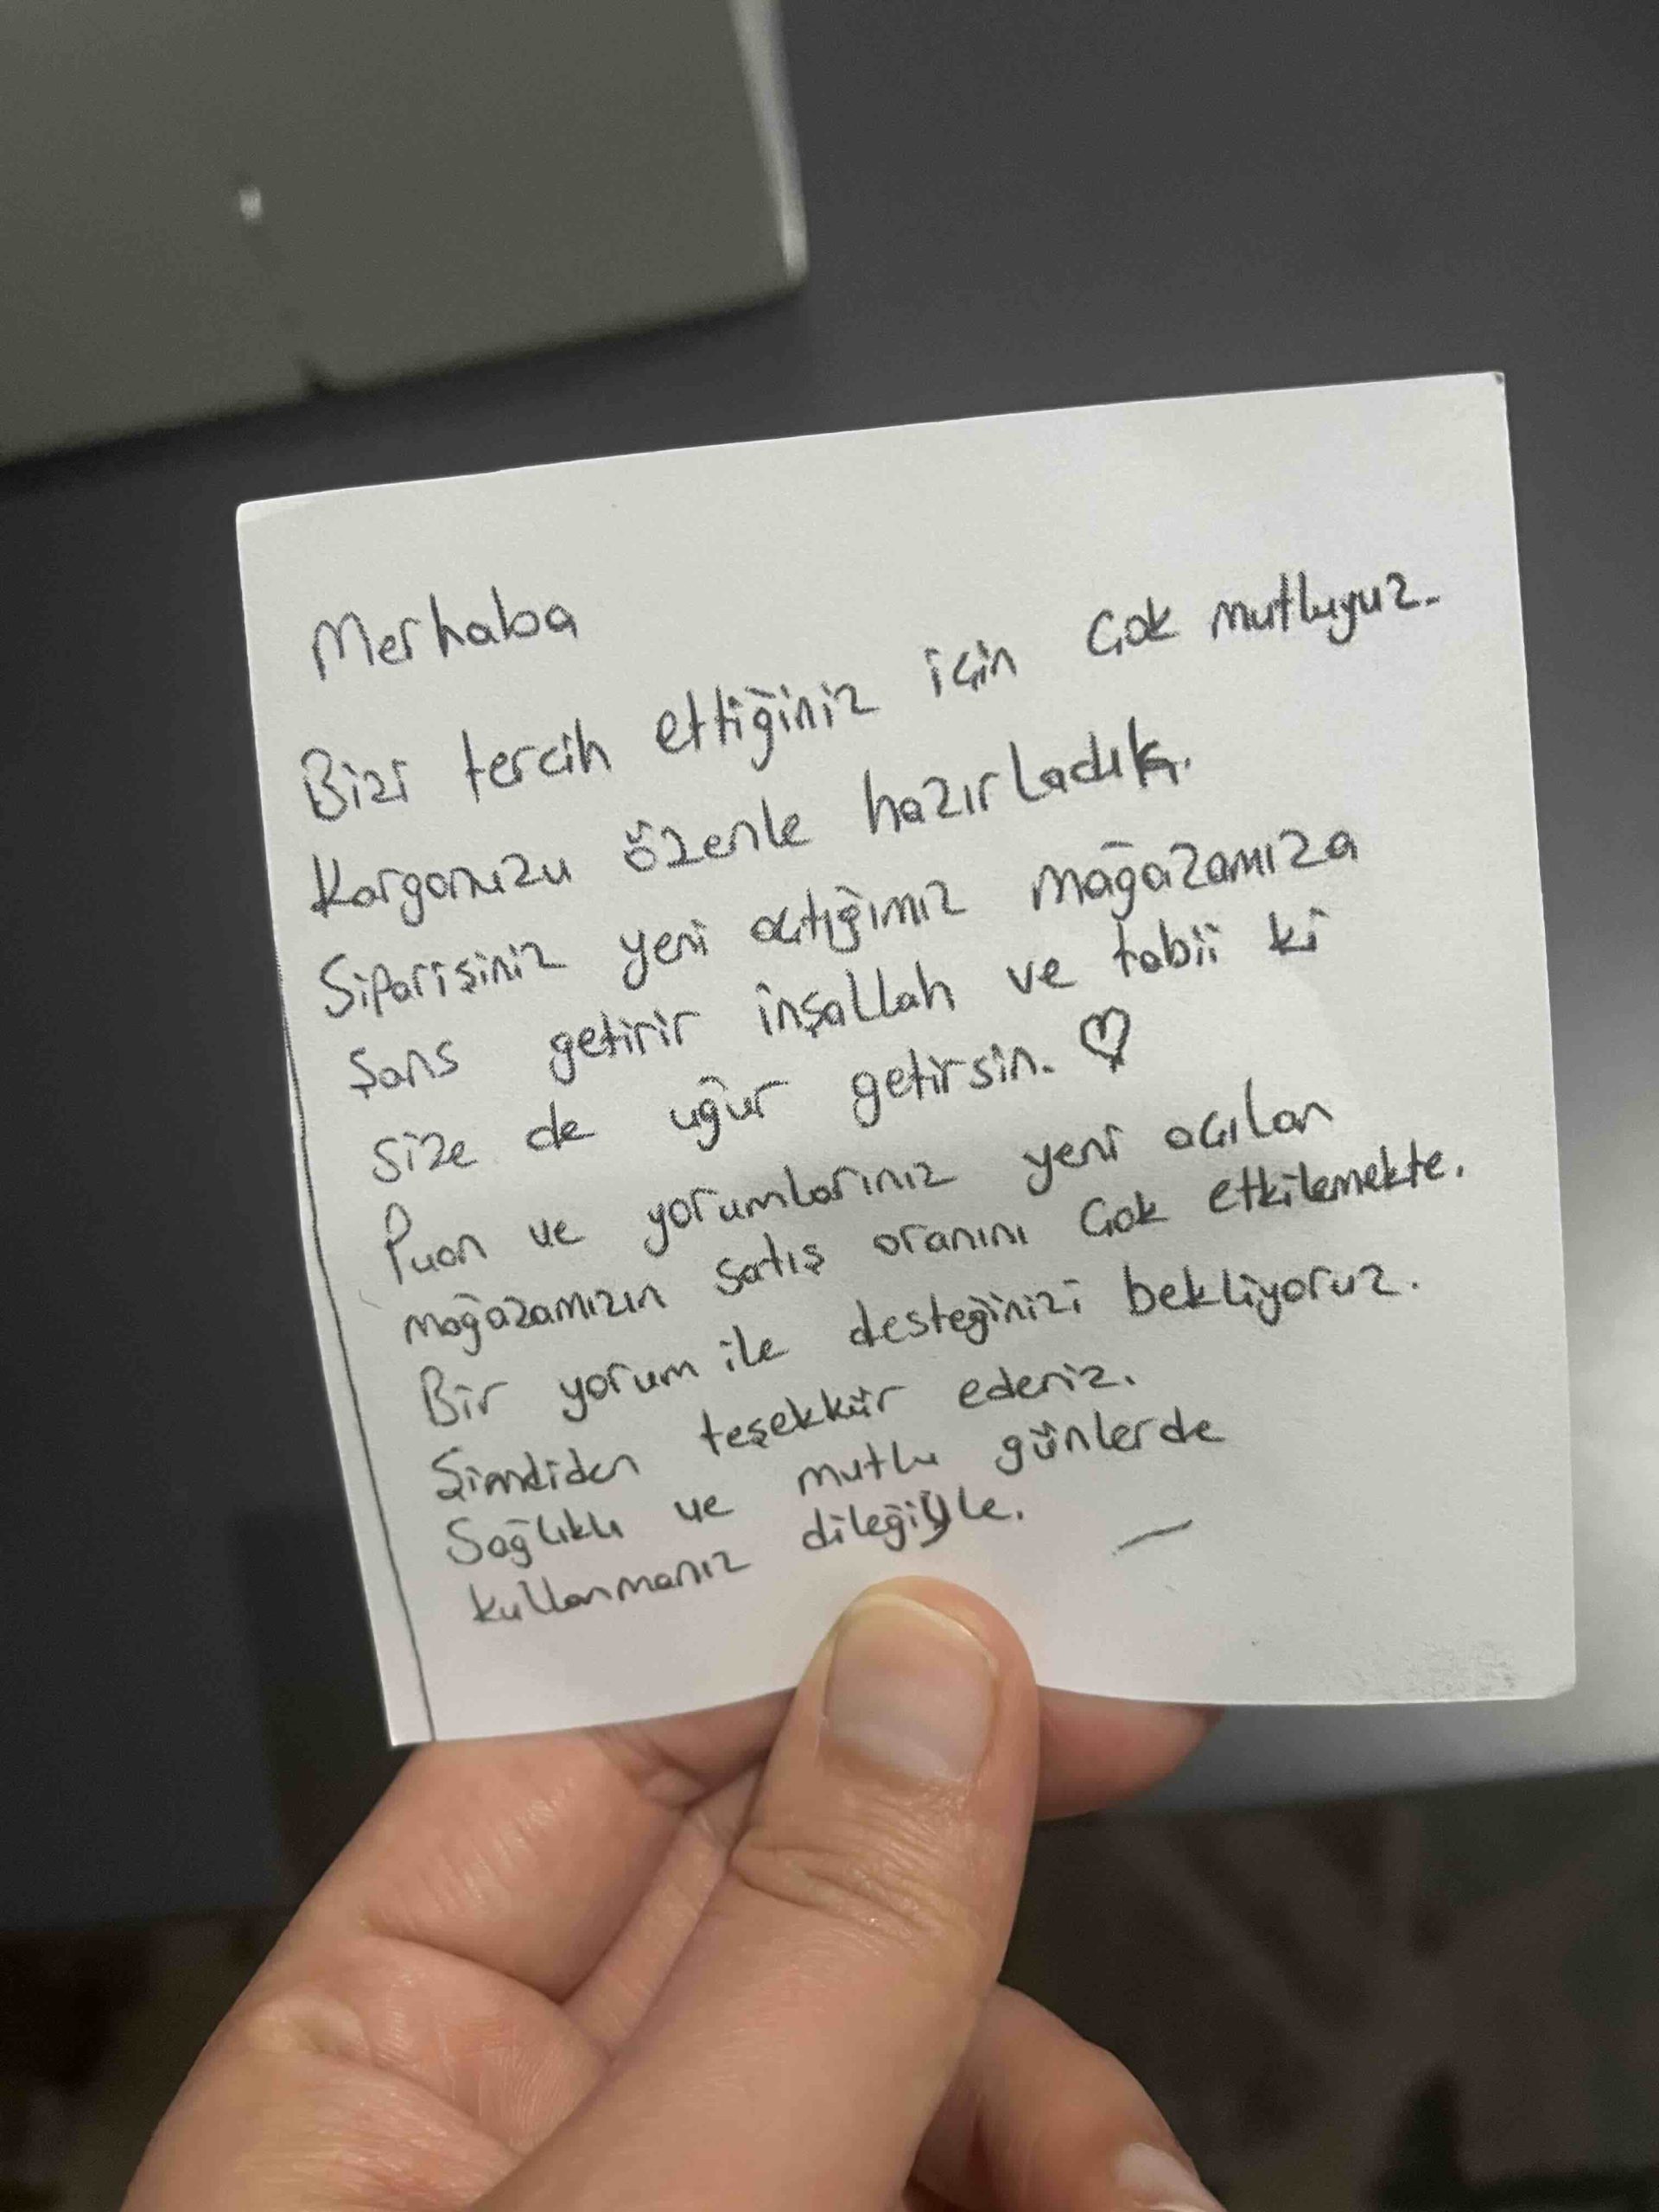 Merhaba
Bizi tercih ettiğiniz için çok mutluyuz.
Kargonuzu özenle hazırladık.
Siparişiniz yeni açtığımız mağazamıza
Şans getirir inşallah ve tabii ki
size de uğur getirsin. ♡
Puan ve yorumlarınız yeni açılan
mağazamızın satış oranını çok etkilemekte.
Bir yorum ile desteğinizi bekliyoruz.
Şimdiden teşekkür ederiz.
Sağlıklı ve mutlu günlerde
kullanmanız dileğiyle.